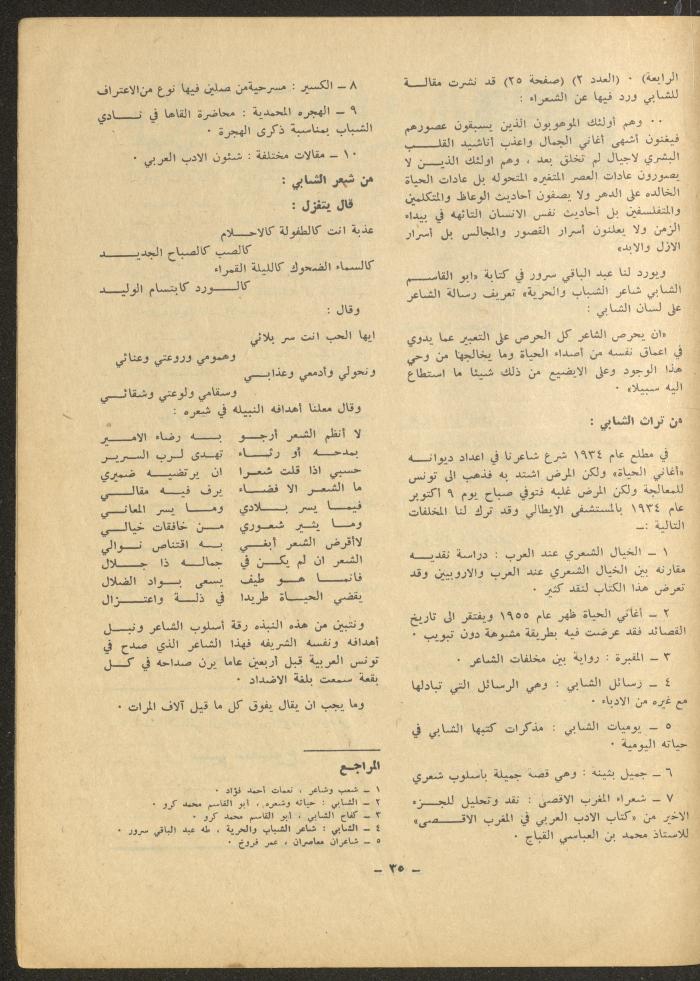 الرابعة) . (العدد ٢) (صفحة ٢٥) قد نشرت مقالة
للشابي ورد فيها عن الشعراء :
. . وهم أولئك الموهوبون الذين يسبقون عصورهم
فيغنون أشهى أغاني الجمال واعذب أناشيد القلب
البشري لاجيال لم تخلق بعد ، وهم اولئك الذين لا
يصورون عادات العصر المتغيره المتحوله بل عادات الحياة
الخالده على الدهر ولا يصفون أحاديث الوعاظ والمتكلمين
والمتفلسفين بل أحاديث نفس الانسان التائهه في بيداء
الزمن ولا يعلنون أسرار القصور والمجالس بل أسرار
الازل والابد»
ويورد لنا عبد الباقي سرور في كتابة «ابو القاسم
الشابي شاعر الشباب والحرية» تعريف رسالة الشاعر
على لسان الشابي :
«ان يحرص الشاعر كل الحرص على التعبير عما يدوي
في اعماق نفسه من أصداء الحياة وما يخالجها من وحي
هذا الوجود وعلى الايضيع من ذلك شيئا ما استطاع
اليه سبيلا» .
من تراث الشابي :
في مطلع عام ١٩٣٤ شرع شاعرنا في اعداد ديوانه
«أغاني الحياة» ولكن المرض اشتد به فذهب الى تونس
للمعالجة ولكن المرض غلبه فتوفي صباح يوم ٩ اكتوبر
عام ١٩٣٤ بالمستشفى الايطالي وقد ترك لنا المخلفات
التالية :ـ
١ ـ الخيال الشعري عند العرب : دراسة نقديه
مقارنه بين الخيال الشعري عند العرب والاروبيين وقد
تعرض هذا الكتاب لنقد كثير .
٢ ـ أغاني الحياة ظهر عام ١٩٥٥ ويفتقر الى تاريخ
القصائد فقد عرضت فيه بطريقة مشوهة دون تبويب .
٣ ـ المقبرة : رواية بين مخلفات الشاعر .
٤ ـ رسائل الشابي : وهي الرسائل التي تبادلها
مع غيره من الادباء .
٥ ـ يوميات الشابي : مذكرات كتبها الشابي في
حياته اليومية .
٦ ـ جميل بثينه : وهي قصة جميلة باسلوب شعري
٧ ـ شعراء المغرب الاقصى : نقد وتحليل للجزء
الاخير من «كتاب الادب العربي في المغرب الاقصى»
للاستاذ محمد بن العباسي القباج .
٨ ـ الكسير : مسرحيةمن صلين فيها نوع من الاعتراف
٩ ـ الهجره المحمدية : محاضرة القاها في نادي
الشباب بمناسبة ذكرى الهجرة .
١٠ ـ مقالات مختلفة : شئون الادب العربي .
من شعر الشابي :
قال يتغزل :
عذبة انت كالطفولة كالاحلام
كالصب كالصباح الجديد
كالسماء الضحوك كالليلة القمراء
كالورد كابتسام الوليد
وقال :
ايها الحب انت سر بلائي
وهمومي وروعتي وعنائي
ونحولي وأدمعي وعذابي
وسقامي ولوعتي وشقائي
وقال معلنا أهدافه النبيله في شعره :
لا أنظم الشعر أرجو به رضاء الامير
بمدحه أو رثاء تهدى لرب السرير
حسبي اذا قلت شعرا ان يرتضيه ضميري
ما الشعر الا فضاء يرف فيه مقالي
فيما يسر بلادي وما يسر المعاني
وما يثير شعوري من خافقات خيالي
لاأقرض الشعر أبغي به اقتناص نوالي
الشعر ان لم يكن في جماله ذا جلال
فانما هو طيف يسعى بواد الضلال
يقضي الحياة طريدا في ذلة واعتزال
ونتبين من هذه النبذه رقة أسلوب الشاعر ونبل
أهدافه ونفسه الشريفه فهذا الشاعر الذي صدح في
تونس العربية قبل أربعين عاما يرن صداحه في كل
بقعة سمعت بلغة الاضداد .
وما يجب ان يقال يفوق كل ما قيل آلاف المرات .
المراجع
١ ـ شعب وشاعر ، نعمات أحمد فؤاد .
٢ ـ الشابي : حياته وشعره ، أبو القاسم محمد كرو .
٣ ـ كفاح الشابي ، أبو القاسم محمد كرو .
٤ ـ الشابي : شاعر الشباب والحرية ، طه عبد الباقي سرور .
٥ ـ شاعران معاصران ، عمر فروخ .
ـ ٣٥ ـ